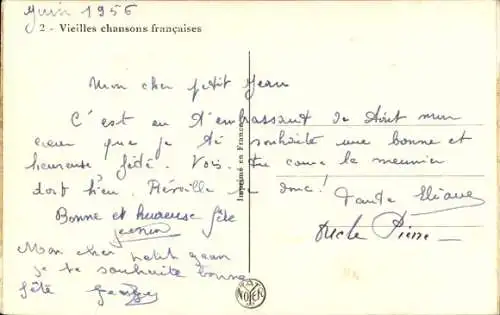 Juin 1956
2 - Vieilles chansons françaises
Mon cher petit Jean
C'est en t'embrassant de tout mon
cœur que je te souhaite une bonne et
heureuse fête. Vois-tu comme le meunier
dort bien. Réveille le donc!
Tante Eliane
Oncle Pierre
Bonne et heureuse fête
Mon cher petit Jean
je te souhaite bonne
fête Georges
Imprimé en France
NOYER